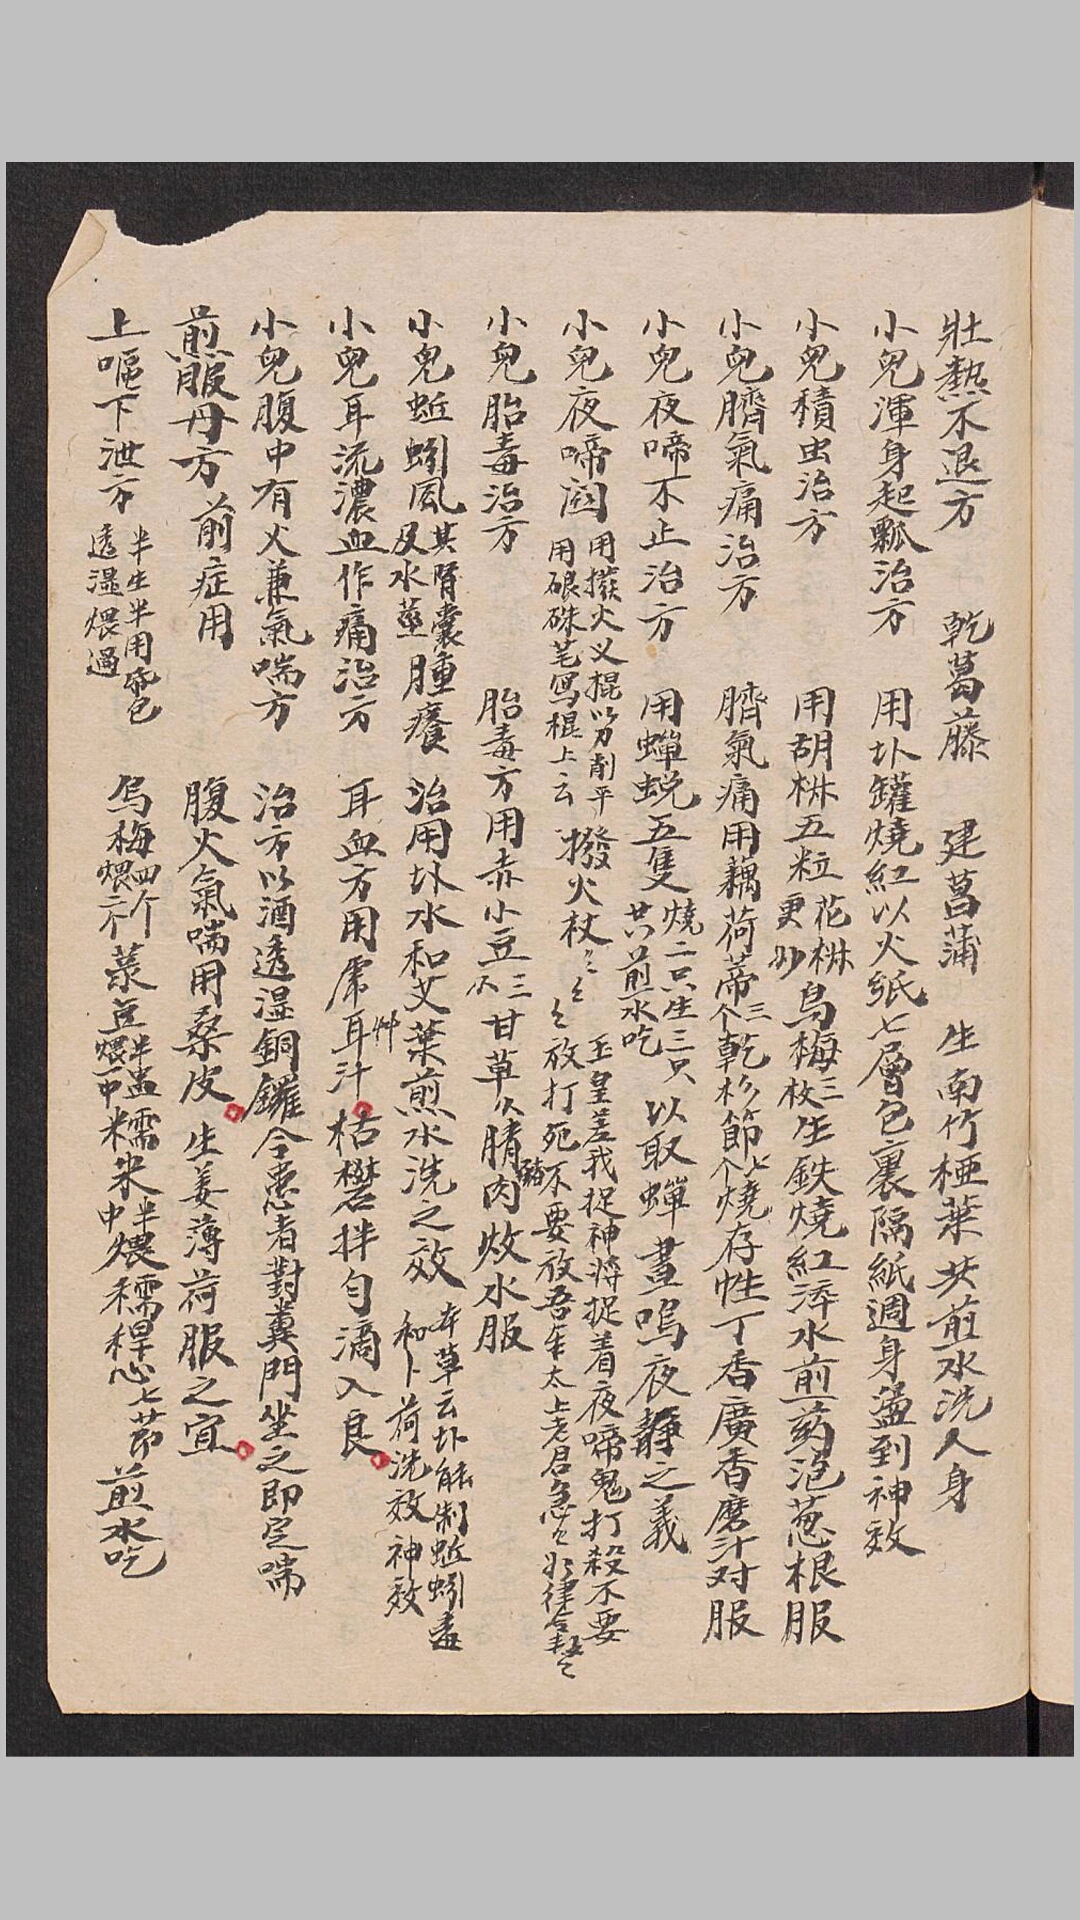 壯熱不退方 乾葛藤 建菖蒲 生南竹椏葉共煎水洗人身
小兒渾身起瓢治方 用圤罐燒紅以火紙七層包裏隔紙週身盪到神效
小兒積虫治方 用胡椒五粒花椒更炒烏梅三枚生鉄燒紅淬水煎药泡葱根服
小兒臍氣痛治方 臍氣痛用藕荷蒂三个乾杉節七个燒存性丁香廣香磨汁对服
小兒夜啼不止治方 用蟬蛻五隻燒二只生三只共煎水吃以取蟬晝鳴夜靜之義
小兒夜啼 用撥火义棍以刀削平用硍硃笔寫棍上云撥火杖々々々 玉皇差我捉神將捉着夜啼鬼打殺不要放打死不要放吾奉太上老君急々如律令
小兒胎毒治方 胎毒方用赤小豆三不甘草久腈猪肉炆水服
小兒蚯蚓風其腎囊及水莖腫癢 治用圤水和艾葉煎水洗之效 本草云圤能制蚯蚓毒和卜荷洗效神效
小兒耳流濃血作痛治方 耳血方用席耳艸汁枯礬拌匀滴入良
小兒腹中有火兼氣喘方 治方以酒透湿銅鑼令患者對糞門坐之即定喘
煎服丹方 前症用 腹火氣喘用桑皮生姜薄荷服之宜
上嘔下泄方半生半用岺包透湿煨過 烏梅四个煨二个菉豆半盅煨一半糯米半中煨糯稈心七节煎水吃